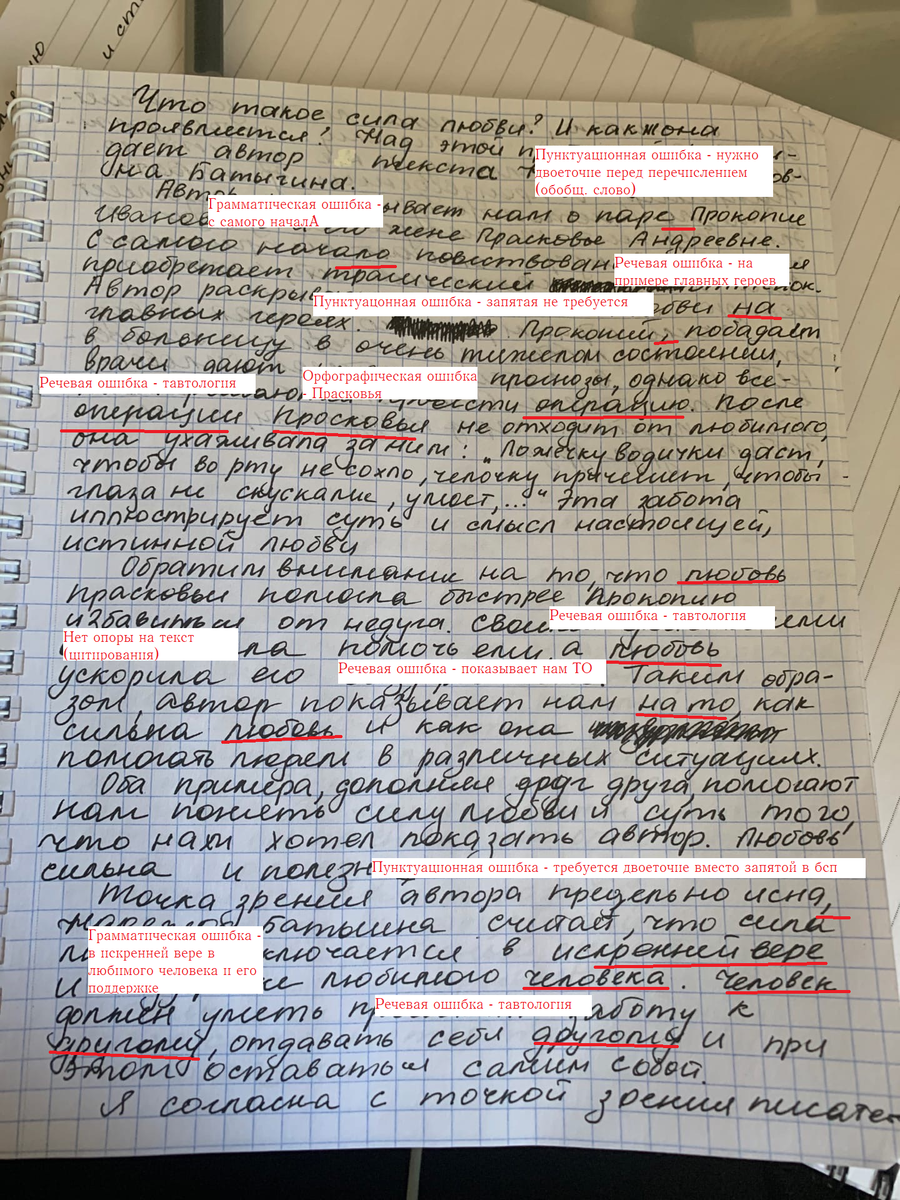 Что такое сила любви? И как она
проявляется? Над этой
дает автор текста
на Батыгина.
Пунктуационная ошибка - нужно
двоеточие перед перечислением
(обобщ. слово)
Грамматическая ошибка -
с самого началА
нам о паре Прокопие
жене Прасковье Андреевне.
С самого начало
Речевая ошибка - на
примере главных героев
приобретает трагический
Автор на
Пунктуацонная ошибка - запятая не требуется
главных героях. Прокопий, попадает
в больницу в очень тяжелом состоянии,
врачи дают прогнозы, однако все-
Речевая ошибка - тавтология
Орфографическая ошибка
- Прасковья
операцию. После
операции Просковья не отходит от любимого,
она ухаживала за ним: „Ложечку водички даст,
чтобы во рту не сохло, челочку причешет, чтобы
глаза не скускалие, умоет,..." Эта забота
иллюстрирует суть и смысл настоящей,
истинной любви
Обратим внимание на то, что любовь
прасковьи помогла быстрее Прокопию
избавиться от недуга.
Речевая ошибка - тавтология
Нет опоры на текст
(цитирования)
помочь ему, а любовь
Речевая ошибка - показывает нам ТО
ускорила его Таким обра-
зом, автор показывает нам на то, как
сильна любовь и как она
помогать людям в различных ситуациях.
Оба примера, дополняя друг друга, помогают
нам понять силу любви и суть того,
что нам хотел показать автор. Любовь
сильна и
Пунктуационная ошибка - требуется двоеточие вместо запятой в бсп
Точка зрения автора предельно ясна,
Батыгина считает, что сила
Грамматическая ошибка -
в искренней вере в
любимого человека и его
поддержке
в искренней вере
любимого человека. Человек
Речевая ошибка - тавтология
должен уметь заботу к
другому, отдавать себя другому и при
этом оставаться самим собой.
Я согласна с точкой зрения писате